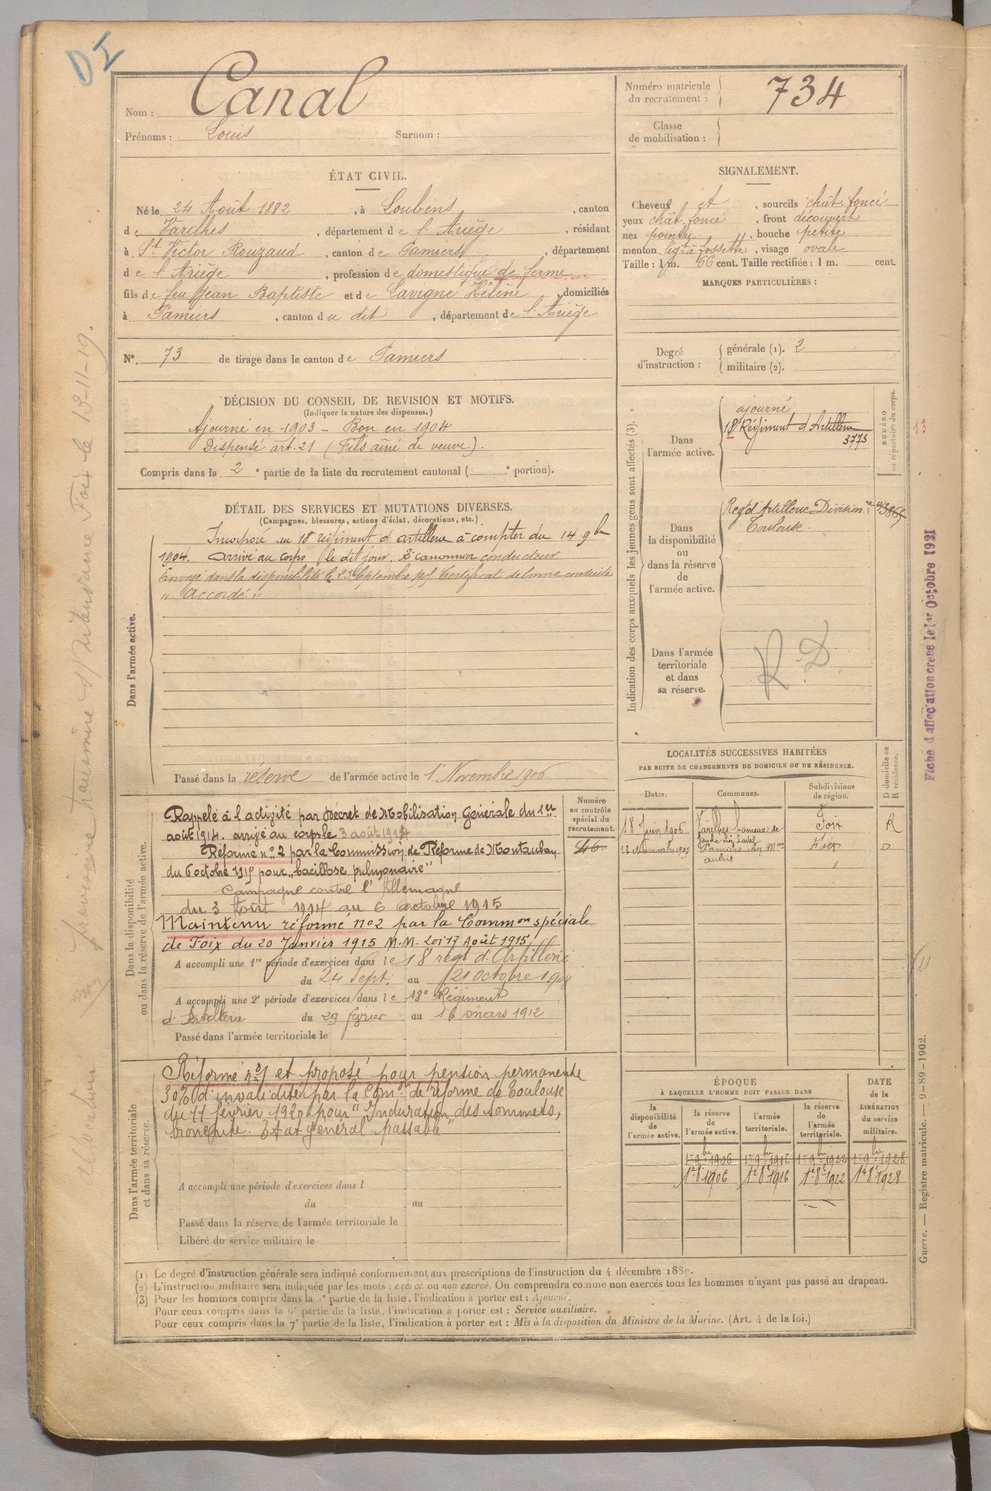 D I
Nom : Canal
Prénoms : Louis Surnom :
Numéro matricule du recrutement : 734
Classe de mobilisation :
ÉTAT CIVIL.
Né le 24 Août 1882, à Loubens, canton
de Varilhes, département de l'Ariège, résidant
à St Victor Rouzaud, canton de Pamiers, département
de l'Ariège, profession de domestique de ferme
fils de feu Jean Baptiste et de Lavigne Hélène, domiciliés
à Pamiers, canton du dit, département de l'Ariège
No. 73 de tirage dans le canton de Pamiers
SIGNALEMENT.
Cheveux et, sourcils chât. foncé
yeux chât. foncé, front découvert
nez pointu, bouche petite
menton à fossette, visage ovale
Taille : 1 m. 66 cent. Taille rectifiée : 1 m. cent.
MARQUES PARTICULIÈRES :
Degré d'instruction : générale (1). 2
militaire (2).
DÉCISION DU CONSEIL DE REVISION ET MOTIFS.
(Indiquer la nature des dispenses.)
Ajourné en 1903 - Bon en 1904
Dispensé art. 21 (Fils aîné de veuve).
Compris dans la 2e partie de la liste du recrutement cantonal ( e portion).
DÉTAIL DES SERVICES ET MUTATIONS DIVERSES.
(Campagnes, blessures, actions d'éclat, décorations, etc.)
Dans l'armée active.
Incorporé au 18e régiment d'artillerie à compter du 14 9bre
1904. Arrivé au corps le dit jour. 2e canonnier conducteur
Envoyé dans la disponibilité le Septembre Certificat de bonne conduite
" Accordé "
Passé dans la réserve de l'armée active le 1er Novembre 1906
Indication des corps auxquels les jeunes gens sont affectés (3).
Dans l'armée active.
ajourné
18e Régiment d'Artillerie
3773
NUMÉRO au répertoire du corps.
Dans la disponibilité ou dans la réserve de l'armée active.
Regt d'Artillerie Division
Toulouse.
Dans l'armée territoriale et dans sa réserve.
R D
LOCALITÉS SUCCESSIVES HABITÉES
PAR SUITE DE CHANGEMENTS DE DOMICILE OU DE RÉSIDENCE.
Dates. Communes. Subdivisions de région. D domicile ou R résidence.
18 Juin 1906 Varilhes hameau de Foix R
Pamiers Foix D
Dans la disponibilité ou dans la réserve de l'armée active.
Numéro au contrôle spécial du recrutement.
Rappelé à l'activité par Décret de Mobilisation Générale du 1er
août 1914. arrivé au corps le 3 août 1914
Réformé no 2 par la Commission de Réforme de Montauban
du 6 octobre 1915 pour "bacillose pulmonaire"
Campagne contre l'Allemagne
du 3 Août 1914 au 6 octobre 1915
Maintenu réformé no2 par la Common spéciale
de Foix du 20 Janvier 1915 M.M. Loi 17 Août 1915.
A accompli une 1re période d'exercices dans le 18e régt d'Artillerie
du 24 Sept. au 21 octobre
A accompli une 2e période d'exercices dans le 18e Régiment
d'Artillerie du 29 février au 16 mars 1912
Passé dans l'armée territoriale le
Dans l'armée territoriale et dans sa réserve.
Réformé no 1 et proposé pour pension permanente
30% d'invalidité par la Comon de réforme de Toulouse
du 11 février 1920 pour "Induration des sommets,
bronchite. Etat général passable"
A accompli une période d'exercices dans l
du au
Passé dans la réserve de l'armée territoriale le
Libéré du service militaire le
ÉPOQUE
À LAQUELLE L'HOMME DOIT PASSER DANS
la disponibilité de l'armée active. la réserve de l'armée active. l'armée territoriale. la réserve de l'armée territoriale.
DATE de la LIBÉRATION du service militaire.
1er 9bre 1906 1er 9bre 1916 1er 9bre 1922 1er 9bre 1928
1er 8bre 1906 1er 8bre 1916 1er 8bre 1922 1er 8bre 1928
(1) Le degré d'instruction générale sera indiqué conformément aux prescriptions de l'instruction du 4 décembre 1889.
(2) L'instruction militaire sera indiquée par les mots : exercé ou non exercé. On comprendra comme non exercés tous les hommes n'ayant pas passé au drapeau.
(3) Pour les hommes compris dans la partie de la liste, l'indication à porter est : Ajourné.
Pour ceux compris dans la 6e partie de la liste, l'indication à porter est : Service auxiliaire.
Pour ceux compris dans la 7e partie de la liste, l'indication à porter est : Mis à la disposition du Ministre de la Marine. (Art. 4 de la loi.)
Fiche d'affectation créée le 1er Octobre 1921
Guerre. — Registre matricule. — 9-89-1902.
Foix le 13-11-19.